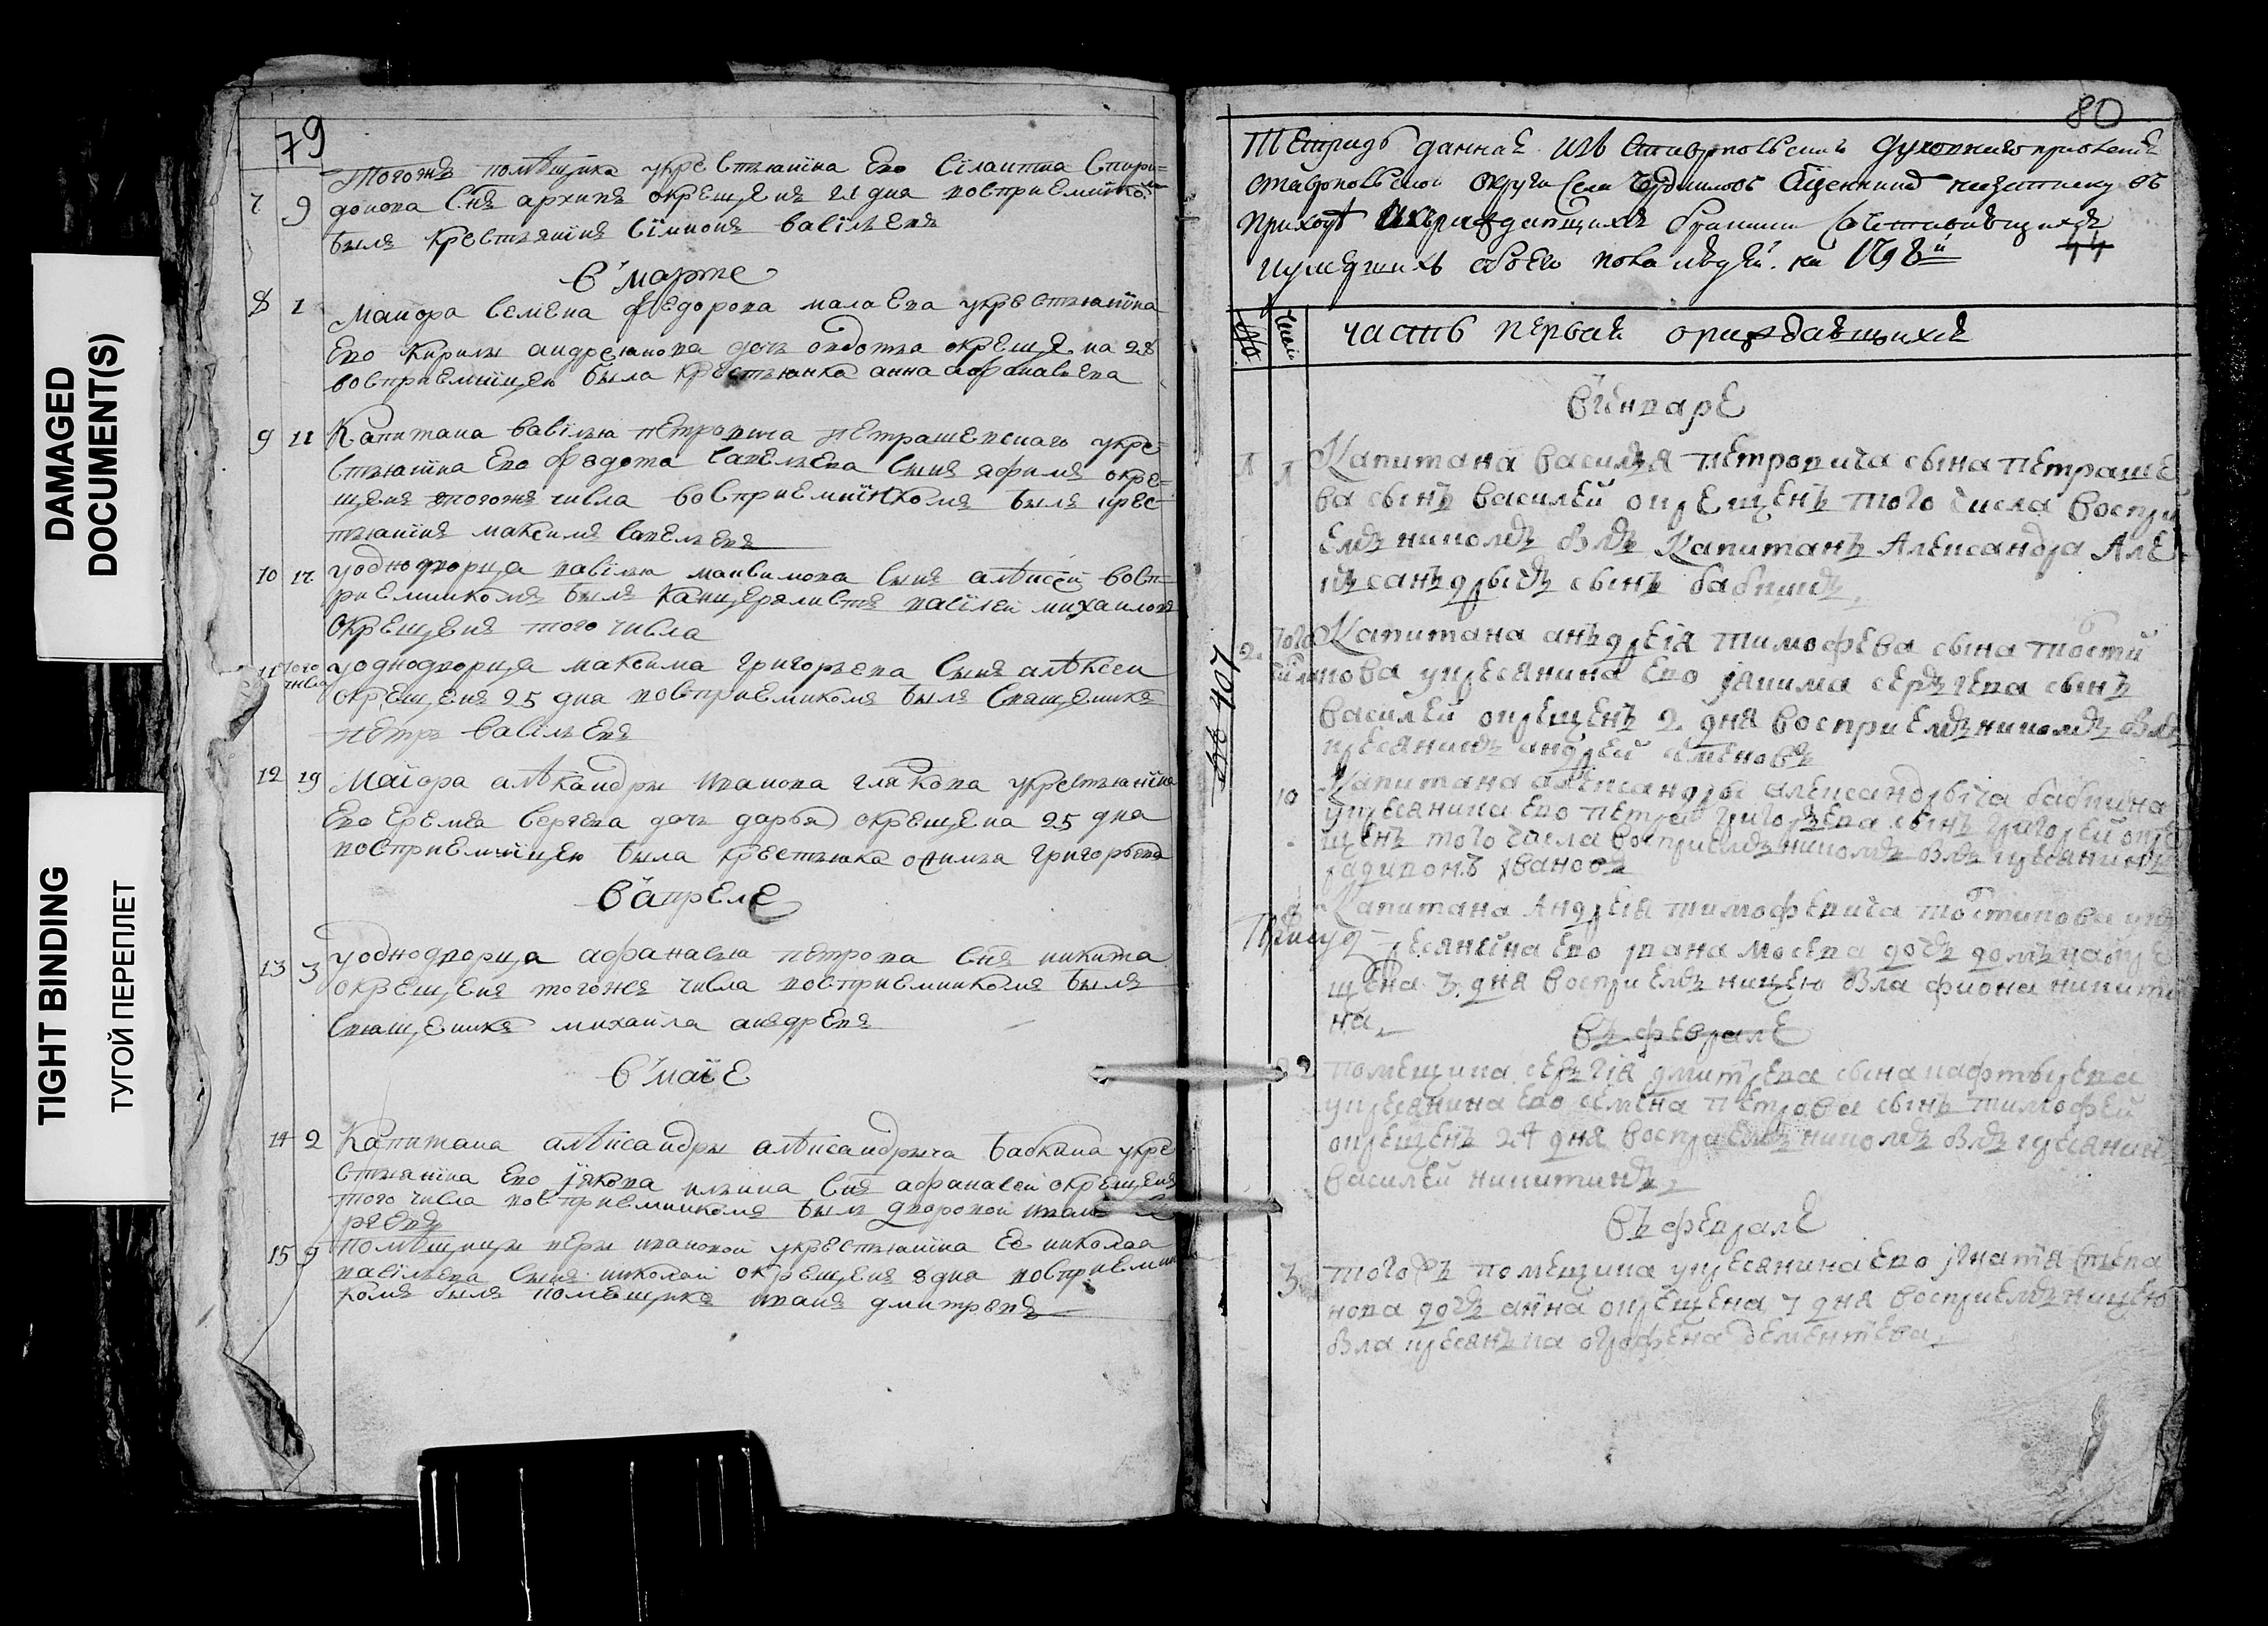 DAMAGED
DOCUMENT(S)
TIGHT BINDING
ТУГОЙ ПЕРЕПЛЕТ
79
тогожъ помѣщика укрестьянїна Ево Сїлантиа Спири-
7 9 донова Снъ архипъ окрещенъ 11 дня восприемнїком
былъ крестьянїнъ Сїмионъ васїльевъ
в марте
8 1 Маиора семена Федорова малаева укрестьянїна
Ево Кирилы андреянова дочь овдотья окрещена 28
восприемнїцею была крестьянка анна афонасьева
9 11 Капитана васїлья петровича петрашевскаго укре-
стьянїна Ево Федота савельева сынъ яфимъ окре-
щенъ тогожъ числа восприемнїнкомъ былъ крес-
тьянїнъ максимъ савельевъ
10 12 уоднодворца васїлья сынъ алѣксей восп-
риемникомъ былъ канцеряристъ васїлеи михаиловъ
окрещенъ того числа
11 того числа уоднодворца максима григорьева Сынъ алѣксеи
окрещенъ 25 дня восприемникомъ былъ Священикъ
петръ васїльевъ
12 19 Маїора алѣксандры иванова глякова укрестьянїна
Ево Еремеа Сергева дочь дарья окрещена 25 дня
восприемнїцею была крестьянка офимья григорьева
в апреле
13 3 уоднодворца афанасья петрова Снъ никита
окрещенъ тогожъ числа восприемникомъ былъ
священикъ михаїла андревъ
в маїе
14 2 Капитана алѣксандры алѣксандрыча бабкина укре
стьянїна Ево якова ильина Снъ афанасеи окрещенъ
того числа восприемникомъ былъ дворовой иван
ревъ
15 9 помѣщицы веры ивановой укрестьянїна Ее николаа
васїльева сынъ николаи окрещенъ 8 дня восприемни
комъ былъ помѣщикъ иванъ дмитревъ
80
Тетрадь данная изъ Ставропольскаго духовнаго правления
ставропольской округи села священнику на записку въ
приходѣ ихъ раждающихся браками сочетавающихся
иумерших обоего пола людей на 1798й
44
№ числ часть первая ораждавшихся
в генваре
1 1 Капитана василья петровича сына петраше
ва сынъ василей окрещенъ того числа воспри
емъникомъ былъ капитанъ Александра Але
ксанъдрычь сынъ бабкинъ
2 того числ Капитана анъдрея тимофева сына
укресянина ево якима серъгева сынъ
василей окрещенъ 2 дня восприемъникомъ былъ
кресянинъ андрей семеновъ
10 Капитана александры александрыча бабкина
укресянина ево петра григорьева сынъ григорей окре
щенъ того числа восприемъникомъ былъ кресянинъ
радивонъ ивановъ
Капитана Андрея тимофевича укр
есянина ево ивана мосева дочь домъна окре
щена 3 дня восприемъницею была фиона никити
на
въ феврале
2 помещика серъгия дмитрева сына
укресянина ево семена петрова сынъ тимофей
окрещенъ 24 дня восприемъникомъ былъ кресянинъ
василей никитинъ
въ феврале
3 тогожъ помещика укресянина ево игнатия степа
нова дочь анна окрещена 7 дня восприемъницею
была кресянъка огрофена дементева